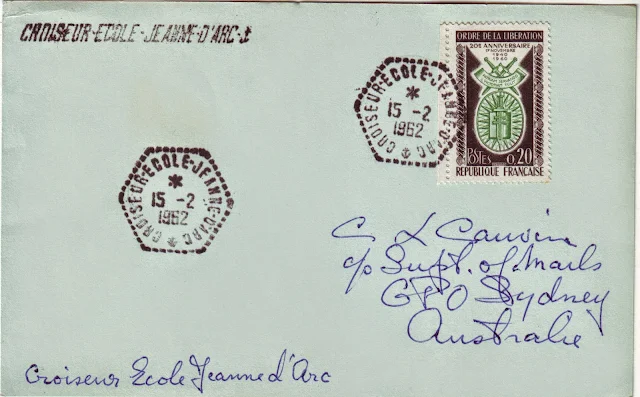 CROISEUR-ECOLE-JEANNE-D'ARC-
CROISEUR-ECOLE-JEANNE-D'ARC
15 -2
1962
ORDRE DE LA LIBERATION
20E ANNIVERSAIRE
17 NOVEMBRE
1940
1960
POSTES 0,20
REPUBLIQUE FRANÇAISE
CROISEUR-ECOLE-JEANNE-D'ARC
15 -2
1962
C L
c/o Supt. of Mails
GPO Sydney
Australie
Croiseur Ecole Jeanne d'Arc